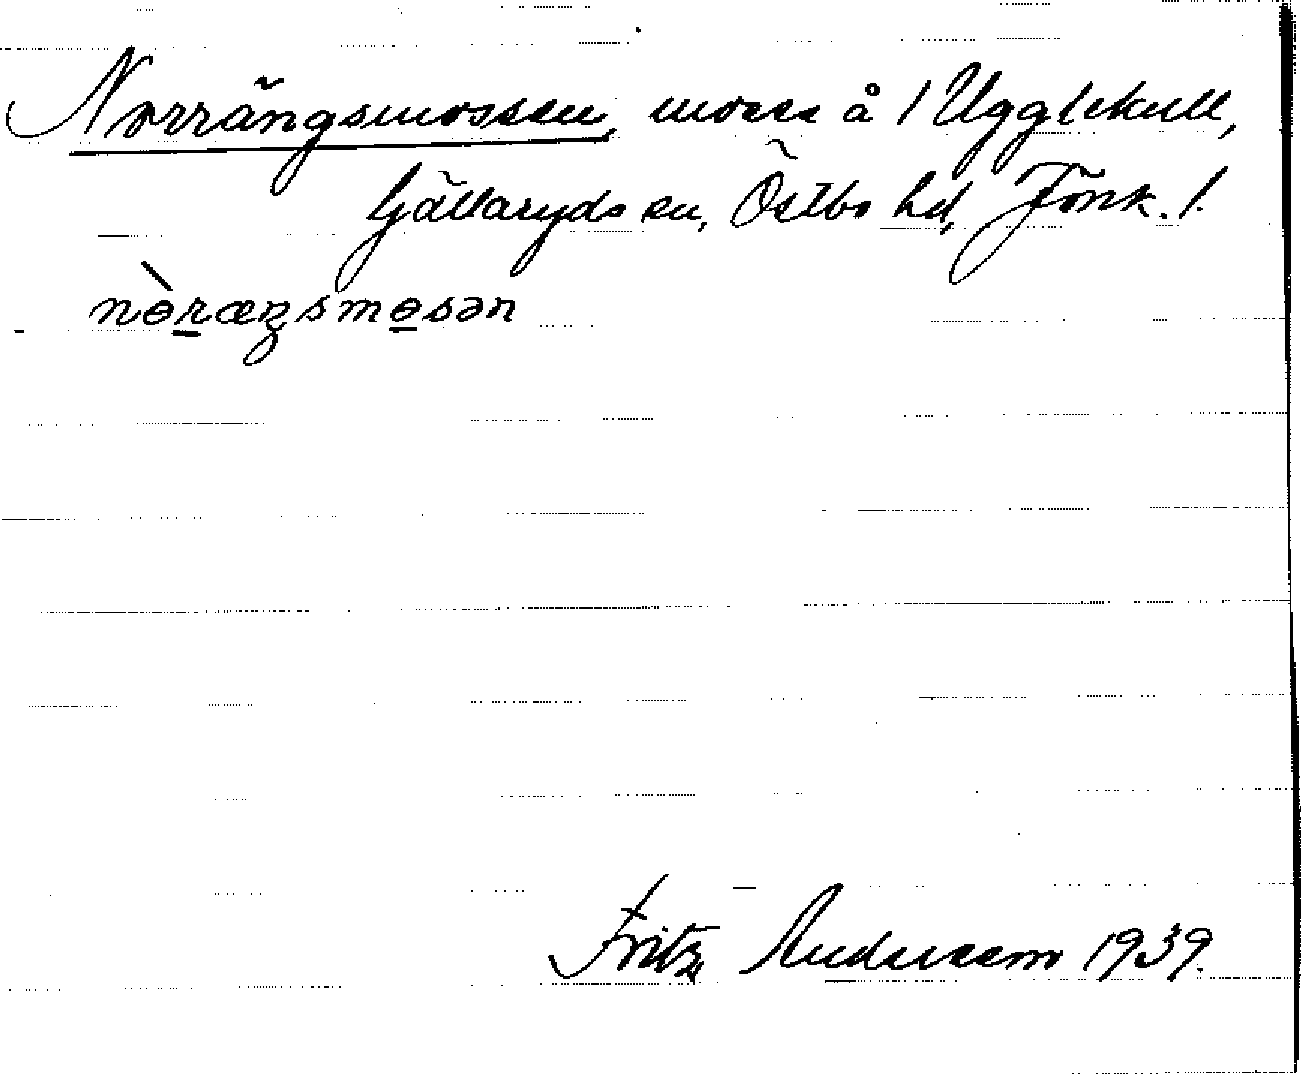 Norrängsmossen, mosse å 1 Ugglekull,
Gällaryds sn, Östbo hd, Jönk. l.
nɵ̀ræŋsmɵsən
Fritz Andersson 1939.